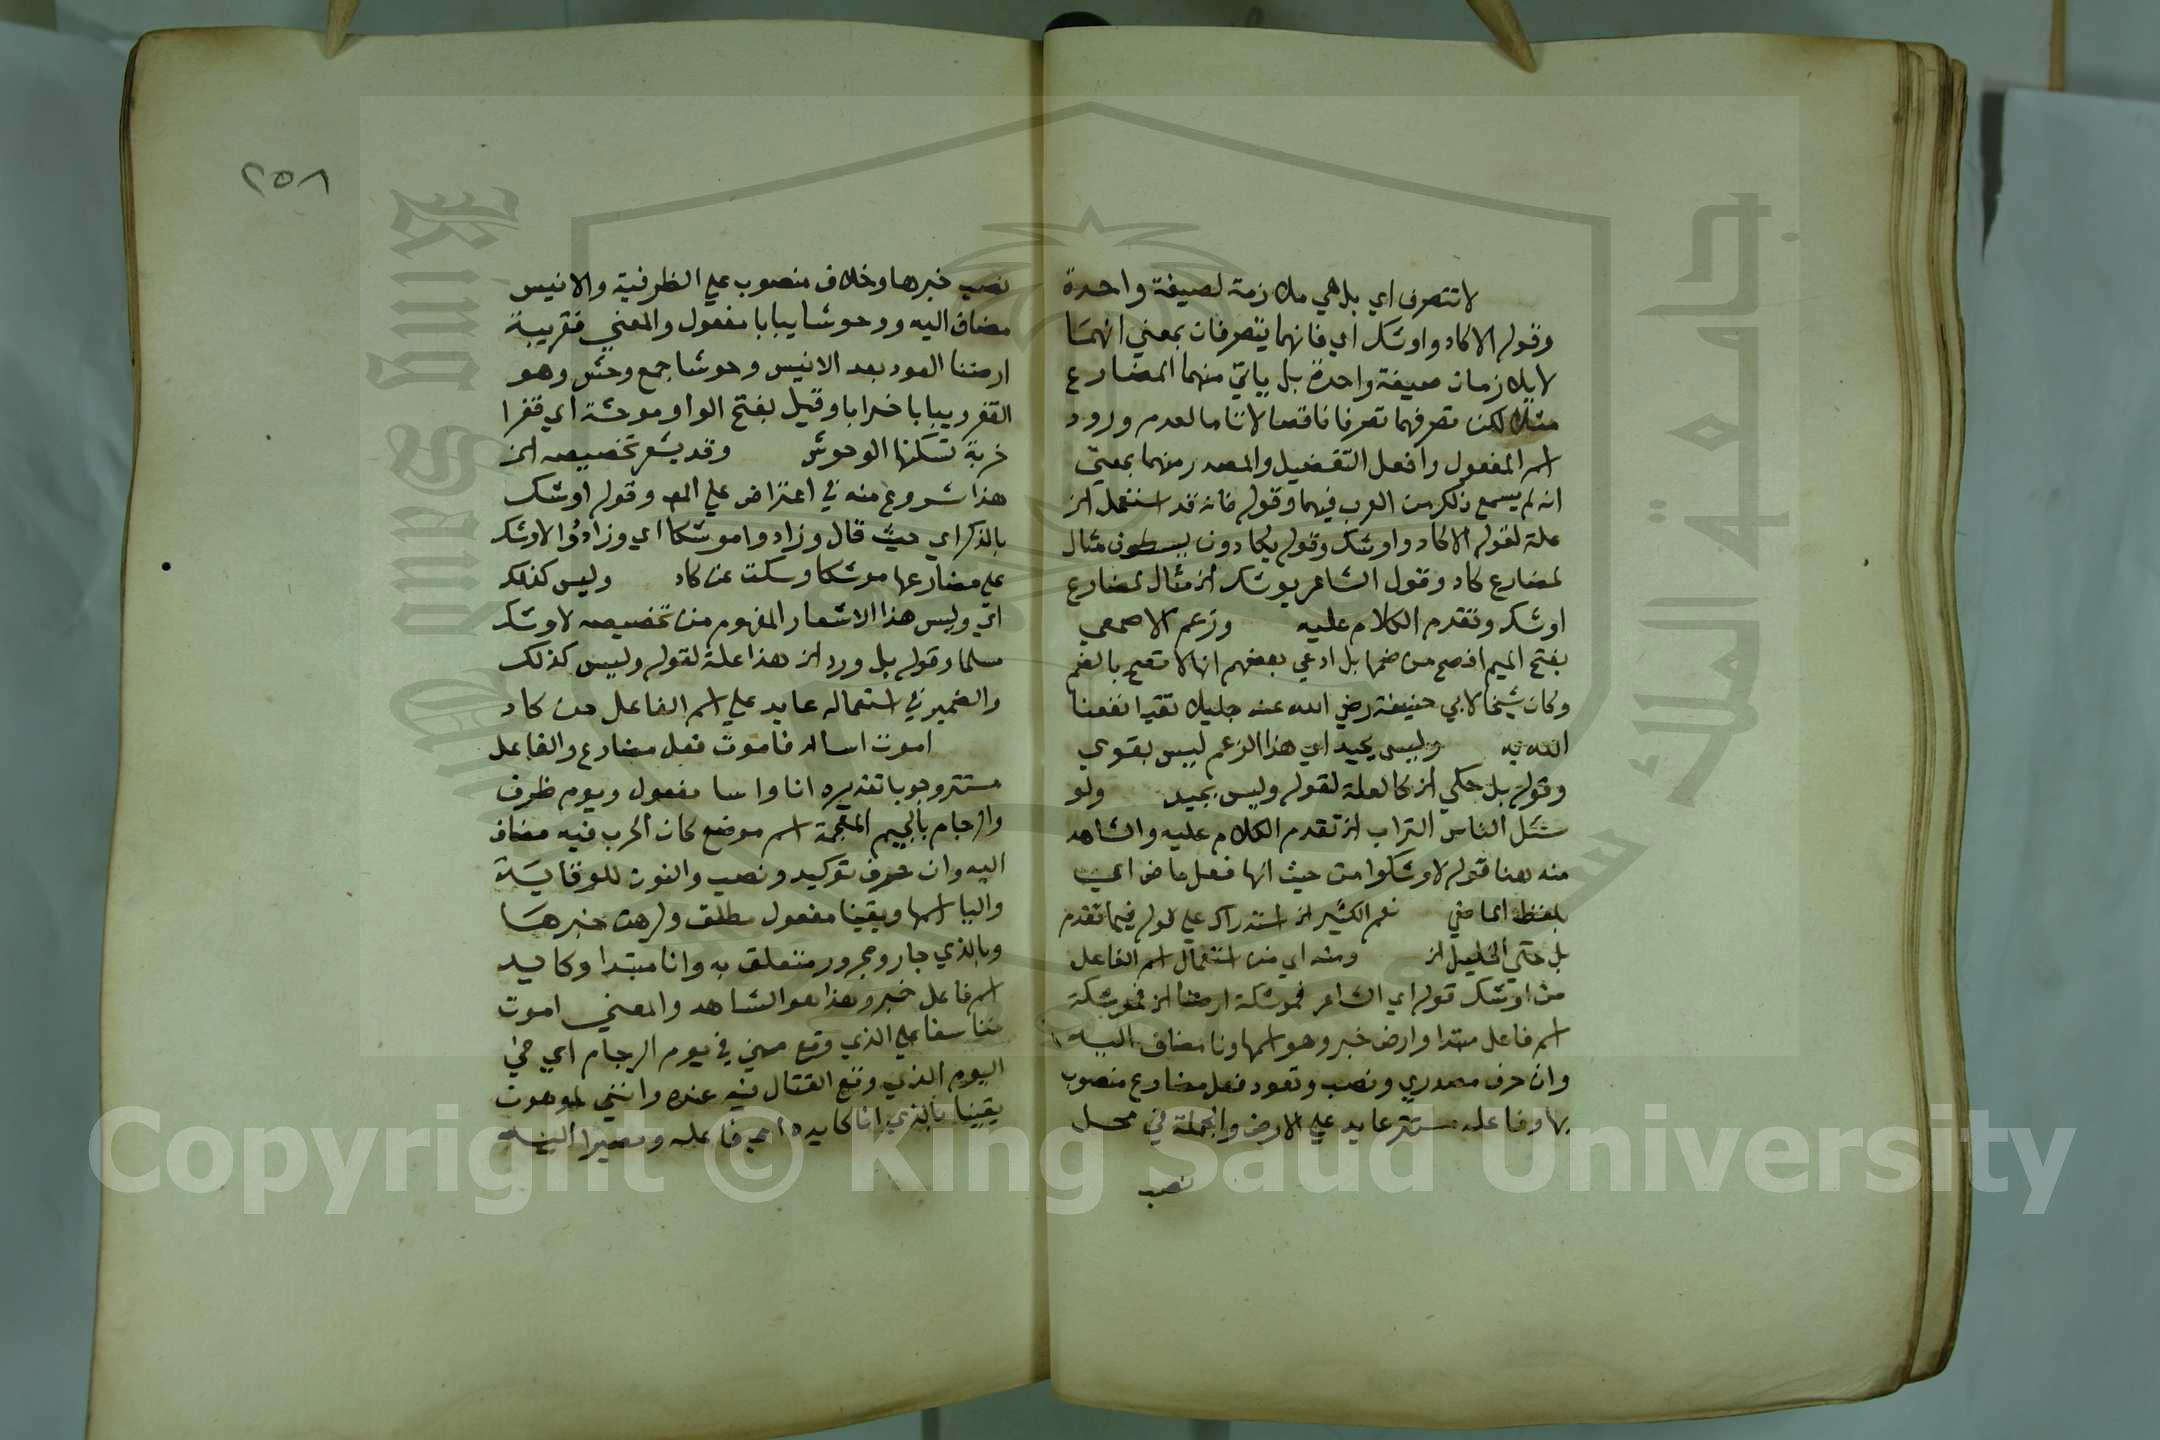 لا تتصرف اي بل هي ملازمة لصيغة واحدة
وقوله الا كاد واوشك اي فانهما يتصرفان بمعني انهما
لا يلازمان صيغة واحدة بل ياتي منهما المضارع
مثلا لكن تصرفهما تصرفا ناقصا لا تاما لعدم ورود
اسم المفعول وافعل التفضيل والمصدر منهما بمعني
انه لم يسمع ذلك من العرب فيهما وقوله فانه قد استعمل الخ
علة لقوله الا كاد واوشك وقوله يكادون يسطون مثال
لمضارع كاد وقول الشاعر يوشك الخ مثال لمضارع
اوشك وتقدم الكلام عليه وزعم الاصمعي
بفتح الميم افصح من ضمها بل ادعي بعضهم انها لا تصح بالضم
وكان شيخا لابي حنيفة رضي الله عنه جليلا تقيا نفعنا
الله به وليس بجيد اي هذا الزعم ليس بقوي
وقوله بل حكي الخ كالعلة لقوله وليس بجيد ولو
سئل الناس التراب الخ تقدم الكلام عليه والشاهد
منه هنا قوله لاوشكوا من حيث انها فعل ماض اي
بلفظ الماضي نعم الكثير الخ استدراك علي قوله فيما تقدم
بل حكي الخليل الخ ومنه اي من استعمال اسم الفاعل
من اوشك قوله اي الشاعر فموشكة ارضنا الخ فموشكة
اسم فاعل مبتدا وارض خبر وهو اسمها ونا مضاف اليه
وان حرف مصدري ونصب وتعود فعل مضارع منصوب
بها وفاعله مستتر عايد علي الارض والجملة في محل
نصب
٢٥٨
نصب خبرها وخلاف منصوب علي الظرفية والانيس
مضاف اليه ووحوشا يبابا مفعول والمعني فقريبة
ارضنا العود بعد الانيس وحوشا جمع وحش وهو
القفر ويبابا خرابا وقيل بفتح الواو موحشة اي قفرا
خربة تسكنها الوحوش وقد يشعر تخصيصه الخ
هذا شروع منه في اعتراض علي المص وقوله اوشك
بالذكر اي حيث قال وزادوا موشكا اي وزادوا لاوشك
علي مضارعها موشكا وسكت عن كاد وليس كذلك
اي وليس هذا الاشعار المفهوم من تخصيصه لاوشك
مسلما وقوله بل ورد الخ هذا علة لقوله وليس كذلك
والضمير في استعماله عايد علي اسم الفاعل من كاد
اموت اسا الخ فاموت فعل مضارع والفاعل
مستتر وجوبا تقديره انا واسا مفعول ويوم ظرف
والرجام بالجيم المعجمة اسم موضع كان الحرب فيه مضاف
اليه وان حرف توكيد ونصب والنون للوقاية
واليا اسمها ويقينا مفعول مطلق ولرهن خبرها
وبالذي جار ومجرور متعلق به وانا مبتدا وكايد
اسم فاعل خبر وهذا هو الشاهد والمعني اموت
متاسفا علي الذي وقع مني في يوم الرجام اي في
اليوم الذي وقع القتال فيه عنده وانني لمرهون
يقينا بالذي انا كايده اي فاعله وصير اليه
جامعة الملك سعود
King Saud University
Copyright © King Saud University